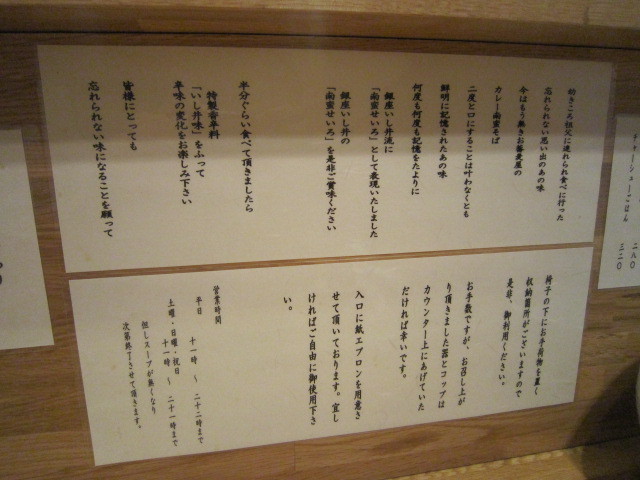 幼きころ祖父に連れられ食べに行った
忘れられない思い出のあの味
今はもう無きお蕎麦屋の
カレー南蛮そば
二度と口にすることは叶わなくとも
鮮明に記憶されたあの味
何度も何度も記憶をたよりに
銀座いし井流に
「南蛮せいろ」として表現いたしました
銀座いし井の
「南蛮せいろ」を是非ご賞味ください
半分ぐらい食べて頂きましたら
特製香辛料
「いし井味」をふって
辛味の変化をお楽しみ下さい
皆様にとっても
忘れられない味になることを願って
椅子の下にお手荷物を置く
収納箇所がございますので
是非、御利用ください。
お手数ですが、お召し上が
り頂きました器とコップは
カウンター上にあげていた
だければ幸いです。
入口に紙エプロンを用意さ
せて頂いております。宜し
ければご自由に御使用下さ
い。
営業時間
平日 十一時 〜 二十二時まで
土曜・日曜・祝日
十一時 〜 二十一時まで
但しスープが無くなり
次第終了させて頂きます。
チャーシューごはん
二八〇
三二〇